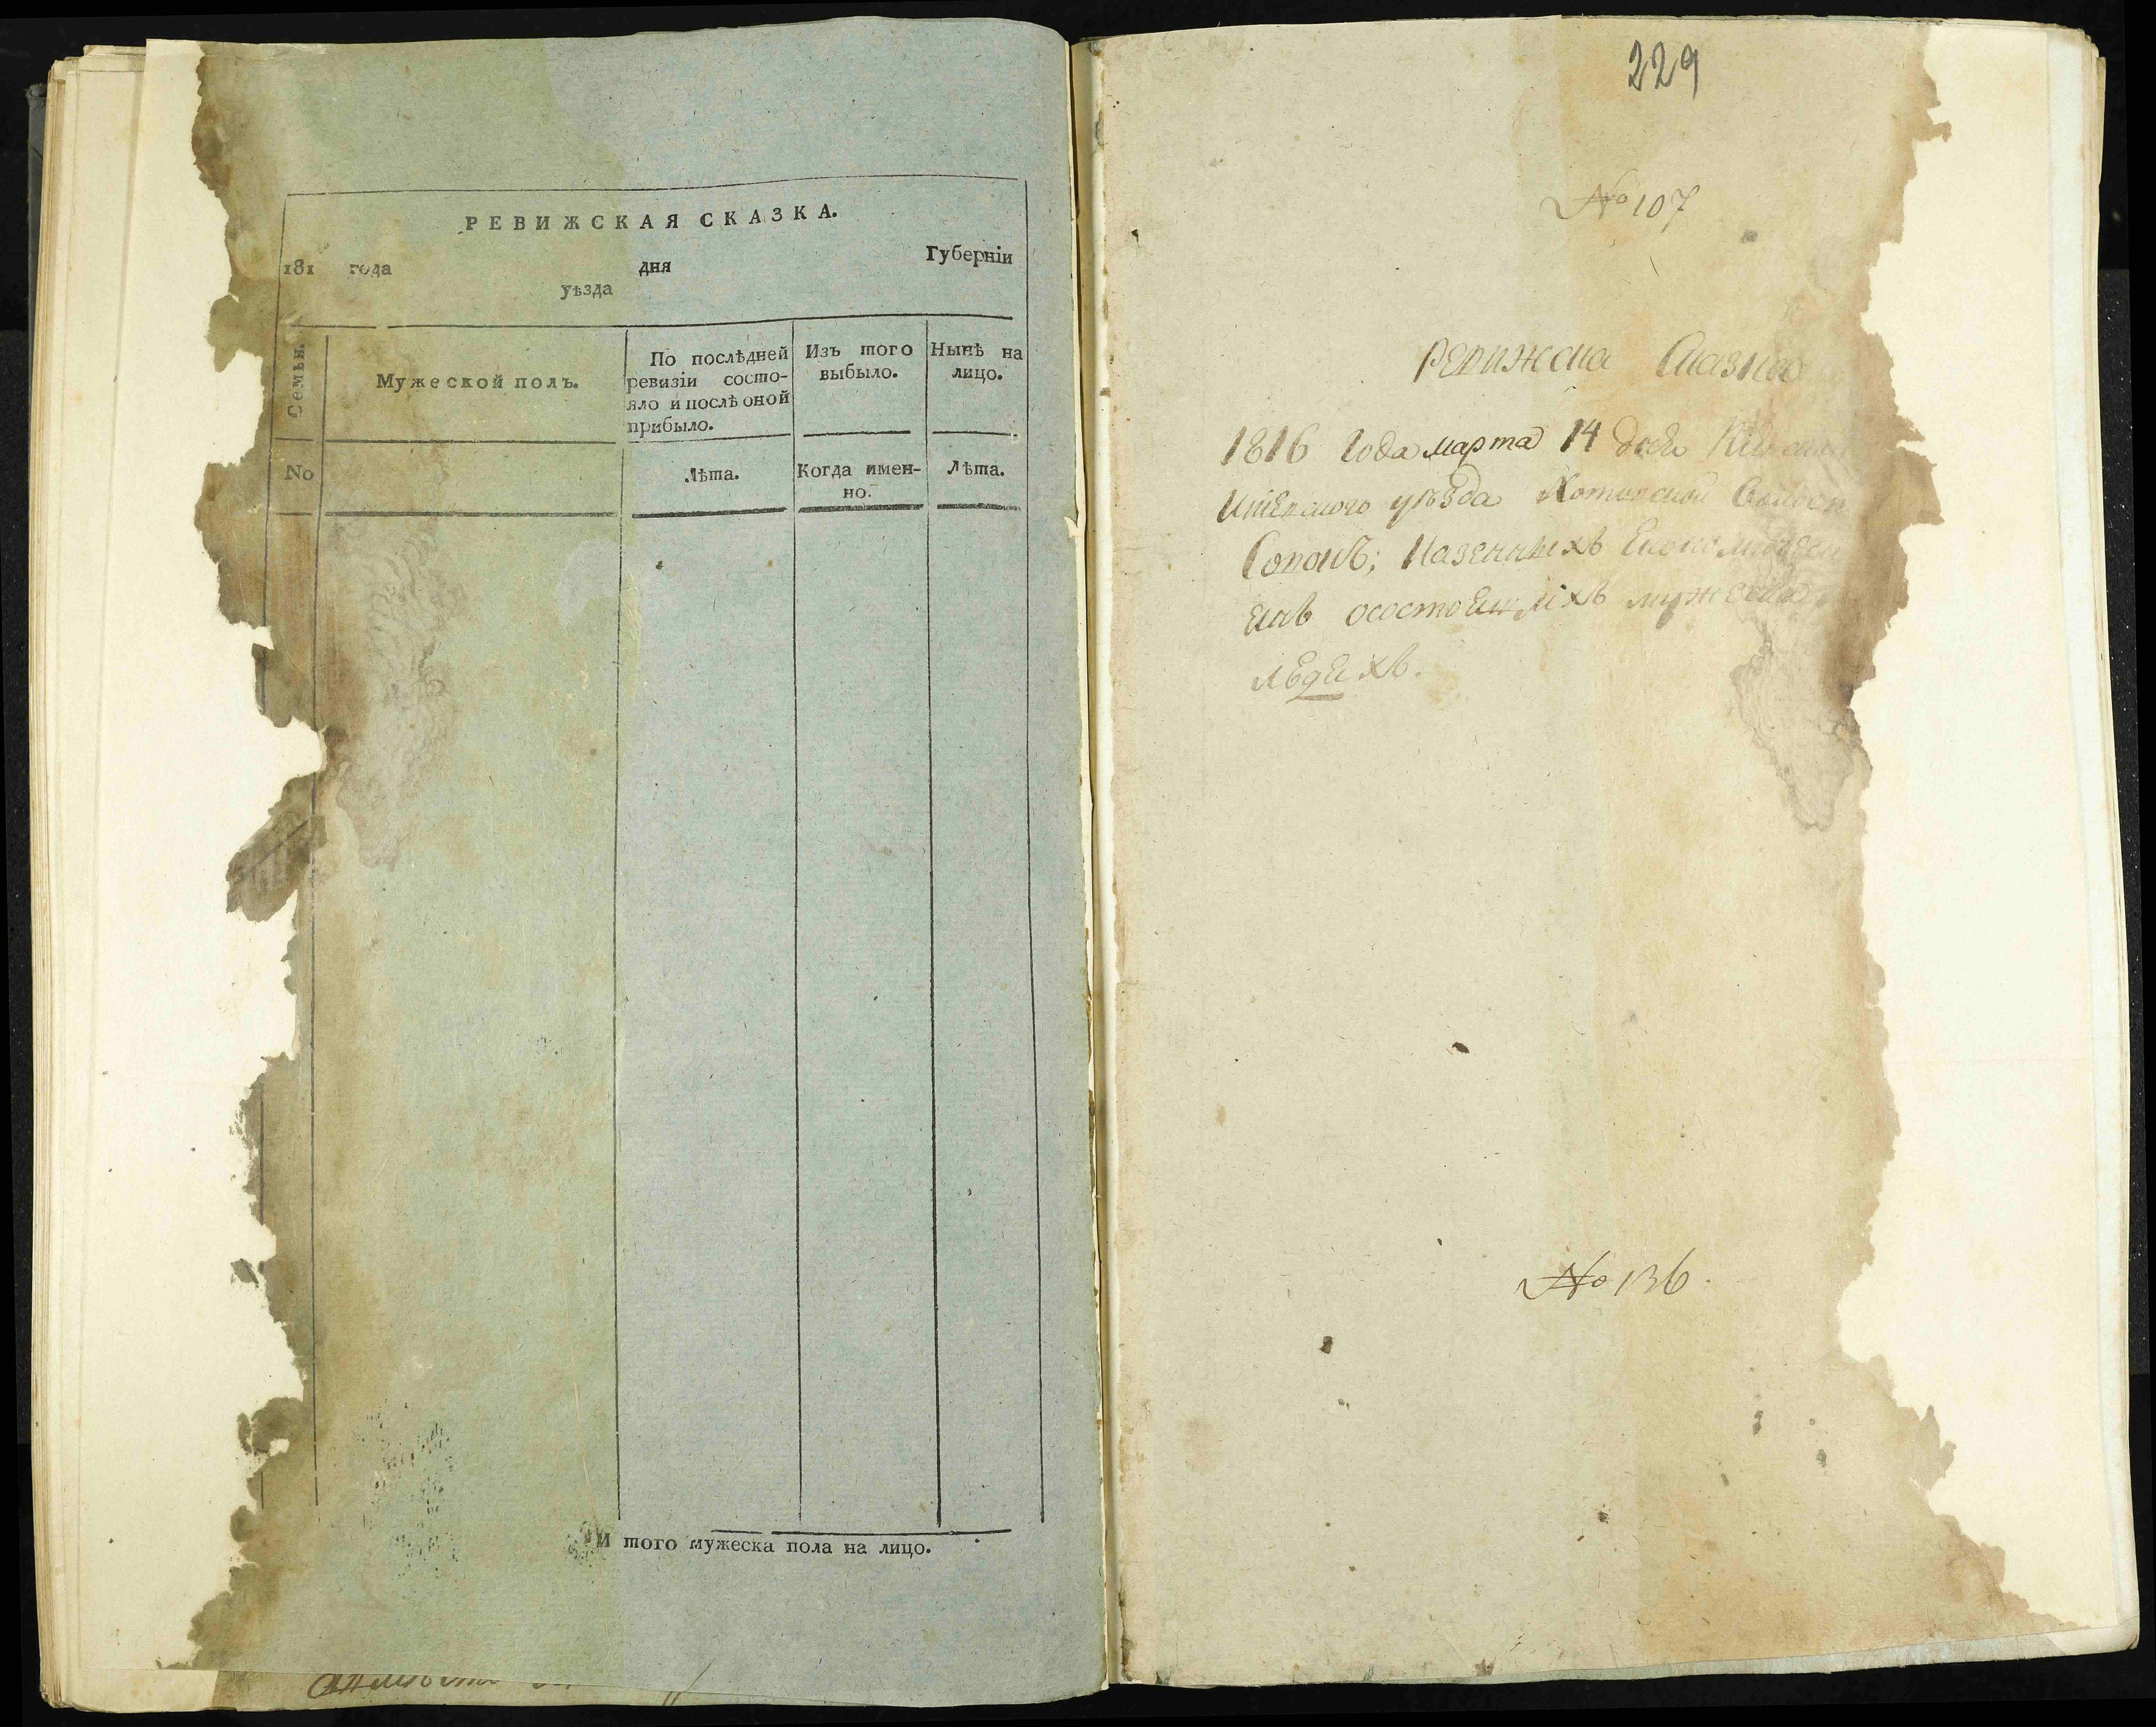 РЕВИЖСКАЯ СКАЗКА.
181 года дня Губерніи
уѣзда
Семьи.
Мужеской полъ.
По послѣдней ревизіи состо-
яло и послѣ оной
прибыло.
Изъ того
выбыло.
Нынѣ на
лицо.
No
Лѣта.
Когда имен-
но.
Лѣта.
И того мужеска пола на лицо.
229
No 107
Ревижска Сказка
1816 Года марта 14 дня
уѣзда
Казенныхъ
мужеска
лѣдехъ.
No 136.